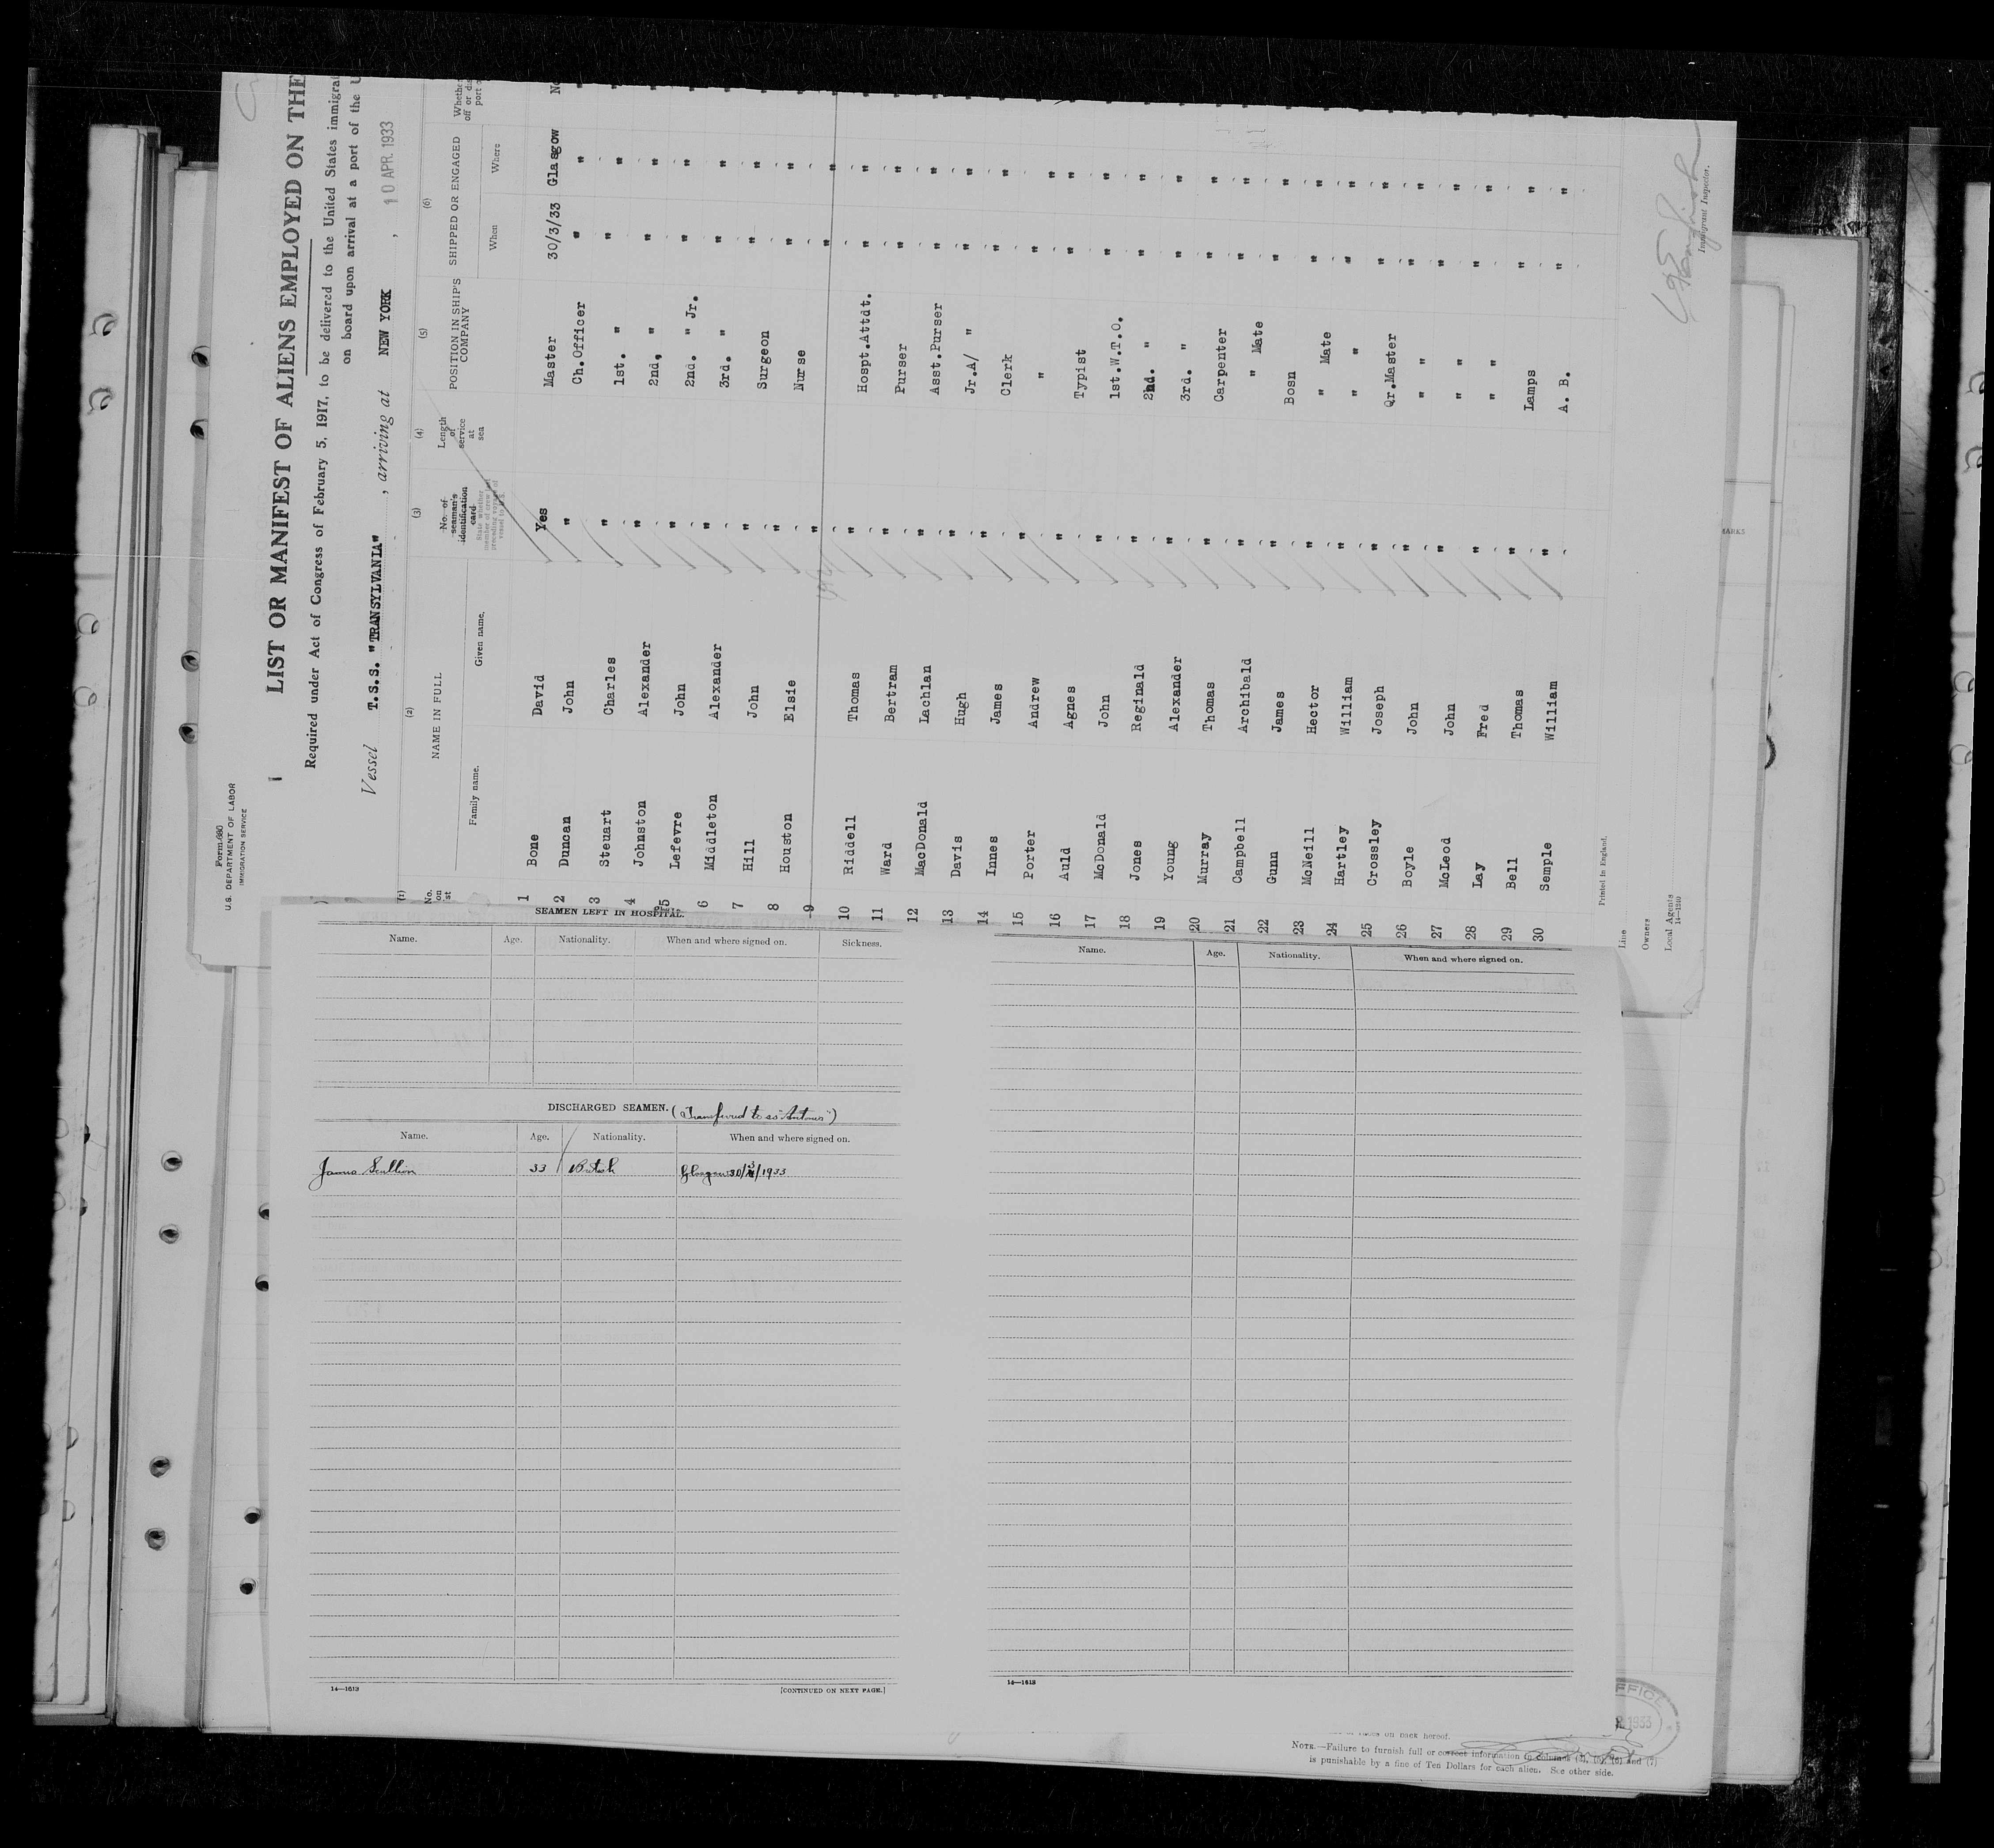 Form 680
U.S. DEPARTMENT OF LABOR
IMMIGRATION SERVICE
LIST OR MANIFEST OF ALIENS EMPLOYED ON THE
Required under Act of Congress of February 5, 1917, to be delivered to the United States immigra
on board upon arrival at a port of the U
Vessel T.S.S. "TRANSYLVANIA", arriving at NEW YORK, 10 APR. 1933
(1) (2) (3) (4) (5) (6)
No. on st
NAME IN FULL
Family name. Given name.
No. of seaman's identification card
State whether member of crew last preceding voyage of vessel to U.S.
Length of service at sea
POSITION IN SHIP'S COMPANY
SHIPPED OR ENGAGED
When Where
Whethe
off or dis
port o
1 Bone David Yes Master 30/3/33 Glasgow No
2 Duncan John " Ch.Officer " "
3 Steuart Charles " 1st. " " "
4 Johnston Alexander " 2nd, " " "
5 Lefevre John " 2nd. " Jr. " "
6 Middleton Alexander " 3rd. " " "
7 Hill John " Surgeon " "
8 Houston Elsie " Nurse " "
9 " " "
10 Riddell Thomas " Hospt.Attdt. " "
11 Ward Bertram " Purser " "
12 MacDonald Lachlan " Asst.Purser " "
13 Davis Hugh " Jr.A/ " " "
14 Innes James " Clerk " "
15 Porter Andrew " " " "
16 Auld Agnes " Typist " "
17 McDonald John " 1st.W.T.O. " "
18 Jones Reginald " 2nd. " " "
19 Young Alexander " 3rd. " " "
20 Murray Thomas " Carpenter " "
21 Campbell Archibald " " Mate " "
22 Gunn James " Bosn " "
23 McNeill Hector " " Mate " "
24 Hartley William " " " " "
25 Crossley Joseph " Qr.Master " "
26 Boyle John " " " " "
27 McLeod John " " " " "
28 Lay Fred " " " " "
29 Bell Thomas " Lamps " "
30 Semple William " A. B. " "
Printed in England.
Line
Owners
Local Agents
14—1240
Immigrant Inspector.
MARKS
SEAMEN LEFT IN HOSPITAL.
Name. Age. Nationality. When and where signed on. Sickness.
DISCHARGED SEAMEN. (Transferred to ss
Name. Age. Nationality. When and where signed on.
James Scullion 33 British Glasgow 30/3/1933
14—1613
[CONTINUED ON NEXT PAGE.]
Name. Age. Nationality. When and where signed on.
14—1613
on back hereof.
NOTE.—Failure to furnish full or correct information in columns (4), (5), (6) and (7)
is punishable by a fine of Ten Dollars for each alien. See other side.
1933